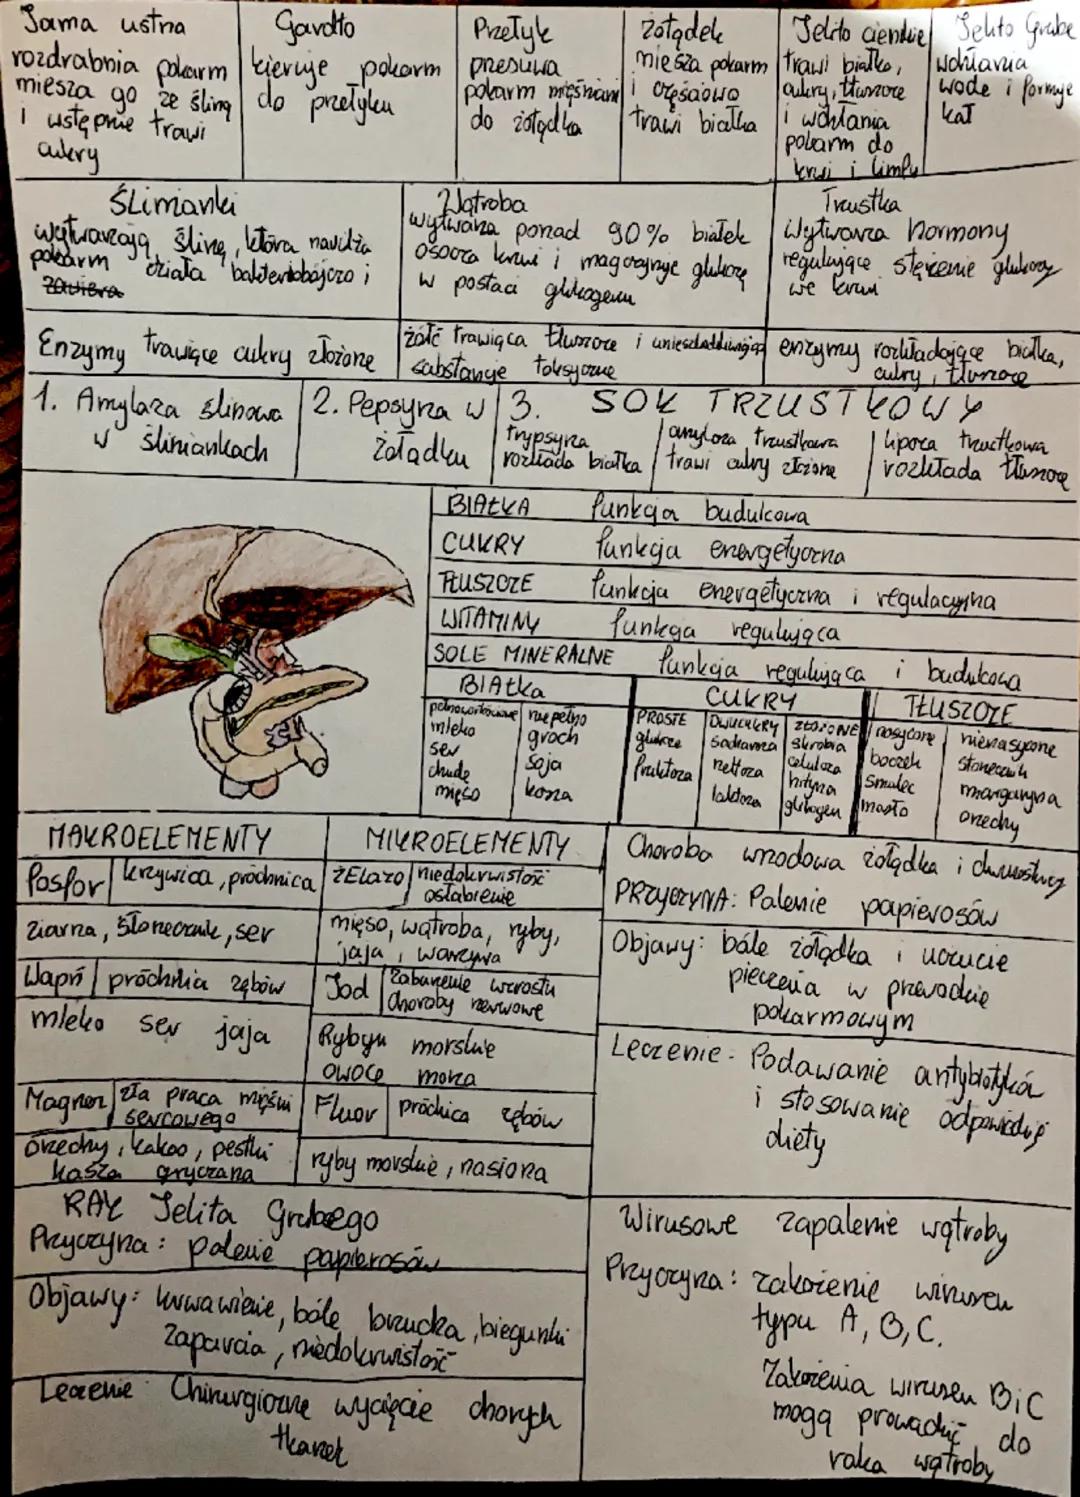 Jama ustna
rozdrabnia pokarm
miesza go ze śliną
i wstępnie trawi
cukry
Gardło
kieruje pokarm
do przełyku
Przełyk
presuwa
pokarm mięśniami
do żołądka
żołądek
miesza pokarm
i częściowo
trawi białka
Jelito cienkie
trawi białko,
cukry, tłuszcze
i wchłania
pokarm do
krwi i limfy
Jelito Grube
wchłania
wodę i formuje
kał
Ślinianki
wytwarzają ślinę, która nawilża
pokarm działa bakteriobójczo i
zawiera
Wątroba
wytwarza ponad 90% białek
osocza krwi i magazynuje glukozę
w postaci glikogenu
Trzustka
Wytwarza hormony
regulujące stężenie glukozy
we krwi
Enzymy trawiące cukry złożone
żółć trawiąca tłuszcze i unieszkodliwiająca
substancje toksyczne
enzymy rozkładające białka,
cukry, tłuszcze
1. Amylaza ślinowa
w śliniankach
2. Pepsyna w
żołądku
3. SOK TRZUSTKOWY
trypsyna
rozkłada białka
amylaza trzustkowa
trawi cukry złożone
lipaza trzustkowa
rozkłada tłuszcze
BIAŁKA funkcja budulcowa
CUKRY funkcja energetyczna
TŁUSZCZE funkcja energetyczna i regulacyjna
WITAMINY funkcja regulująca
SOLE MINERALNE funkcja regulująca i budulcowa
BIAŁka
pełnowartościowe
mleko
ser
chude
mięso
niepełno
groch
soja
kasza
CUKRY
PROSTE
glukoza
fruktoza
DWUCUKRY
sacharoza
laktoza
ZŁOŻONE
skrobia
celuloza
hityna
glikogen
TŁUSZCZE
nasycone
boczek
smalec
masło
nienasycone
słonecznik
margaryna
orzechy
MAKROELEMENTY
Fosfor krzywica, próchnica
ziarna, słonecznik, ser
Wapń próchnica zębów
mleko ser jaja
Magnez zła praca mięśni
sercowego
orzechy, kakao, pestki
kasza gryczana
MIKROELEMENTY
ŻELazo niedokrwistość
osłabienie
mięso, wątroba, ryby,
jaja, warzywa
Jod Zaburzenie wzrostu
choroby nerwowe
Rybyy morskie
owoce morza
Fluor próchica zębów
ryby morskie, nasiona
Choroba wrzodowa żołądka i dwunastnicy
PRZYCZYNA: Palenie papierosów
Objawy: bóle żołądka i uczucie
pieczenia w przewodzie
pokarmowym
Leczenie- Podawanie antybiotyków
i stosowanie odpowiedniej
diety
RAK Jelita Grubego
Przyczyna: palenie papierosów
Objawy: krwawienie, bóle brzucha, biegunki
zaparcia, niedokrwistość
Leczenie Chirurgiczne wycięcie chorych
tkanek
Wirusowe zapalenie wątroby
Przyczyna: zakażenie wirusem
typu A, B, C.
Zakażenia wirusem B i C
mogą prowadzić do
raka wątroby